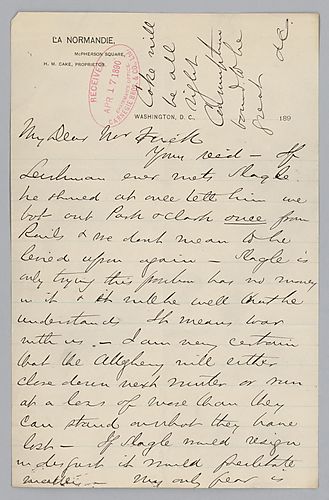 LA NORMANDIE,
McPHERSON SQUARE,
H. M. CAKE, PROPRIETOR.
RECEIVED
APR 17 1890
Coke will
be all
right
Consumption
bound to be
great &c.
WASHINGTON, D. C., 189
My Dear Mr Frick
Your rec'd — If
Leishman ever meets Slagle
he should at once tell him we
got out Park & Clark once from
Rails & we don't mean to be
levied upon again — Slagle is
only trying this position has no money
in it & it will be well that he
understands it means war
with us. — I am very certain
that the Allegheny will either
close down next winter or run
at a loss of more than they
can stand on what they have
lost — If Slagle would resign
in disgust it would facilitate
matters — My only fear is